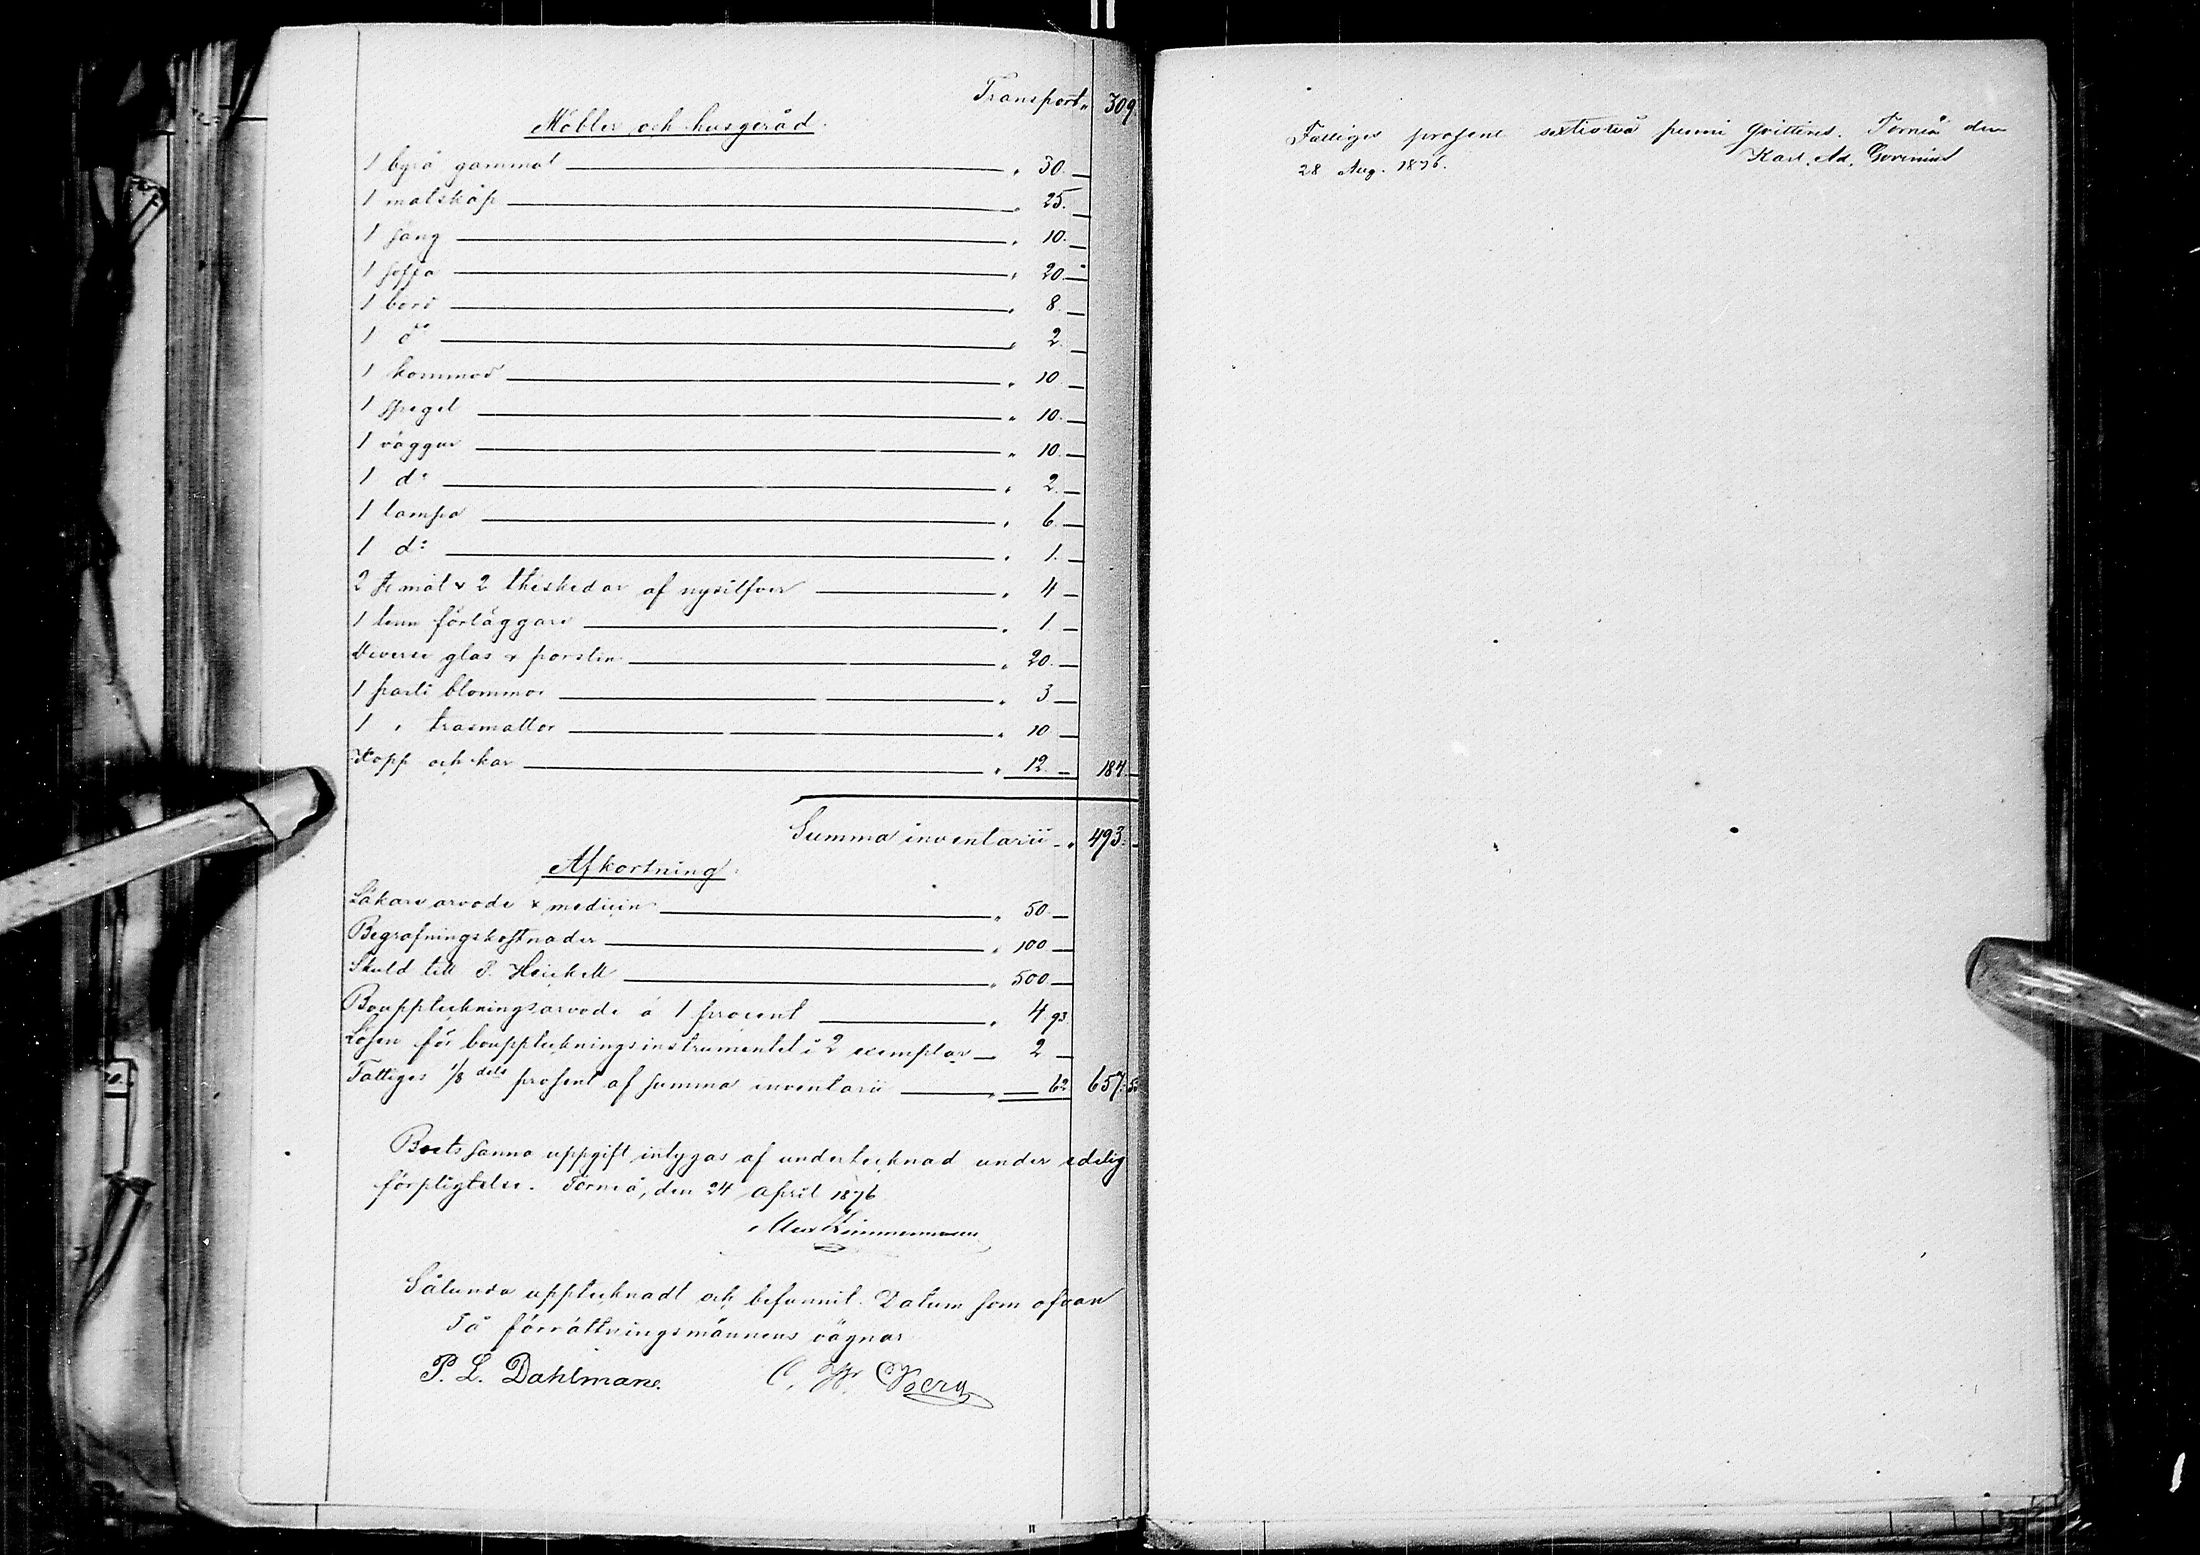 Transport " 309.
Möbler och husgeråd.
1 byrå gammal " 30. —
1 matskåp " 25. —
1 säng " 10. —
1 soffa " 20. —
1 bord " 8. —
1 do " 2. —
1 kommod " 10. —
1 spegel " 10. —
1 väggur " 10. —
1 d:o " 2. —
1 lampa " 6. —
1 d:o " 1. —
2 st mat & 2 theskedar af nysilfver " 4 —
1 tenn förläggare " 1. —
Diverse glas & porslin " 20. —
1 parti blommor " 3 —
1 " trasmattor " 10 —
Kopp och kar " 12. — 184. —
Summa inventarii " 493. —
Afkortning.
Läkare arvode & medicin " 50. —
Begrafningskostnader " 100 —
Skuld till P. Heickell " 500. —
Bouppteckningsarvode á 1 procent " 4.93.
Lösen för bouppteckningsinstrumentet i 2 exemplar — 2 —
Fattiges 1/8 dels prosent af summa inventarii " — 62 657:5
Boets sanna uppgift intygas af undertecknad under edelig
förpligtelse. Torneå, den 24 april 1876
Sålunda upptecknadt och befunnit. Datum som ofvan
På förrättningsmännens vägnar
P. L. Dahlman. C. W. Berg
Fattiges prosent sextiotvå penni qvitteras. Torneå den
28 Aug. 1876. Karl. Ad. Govenius